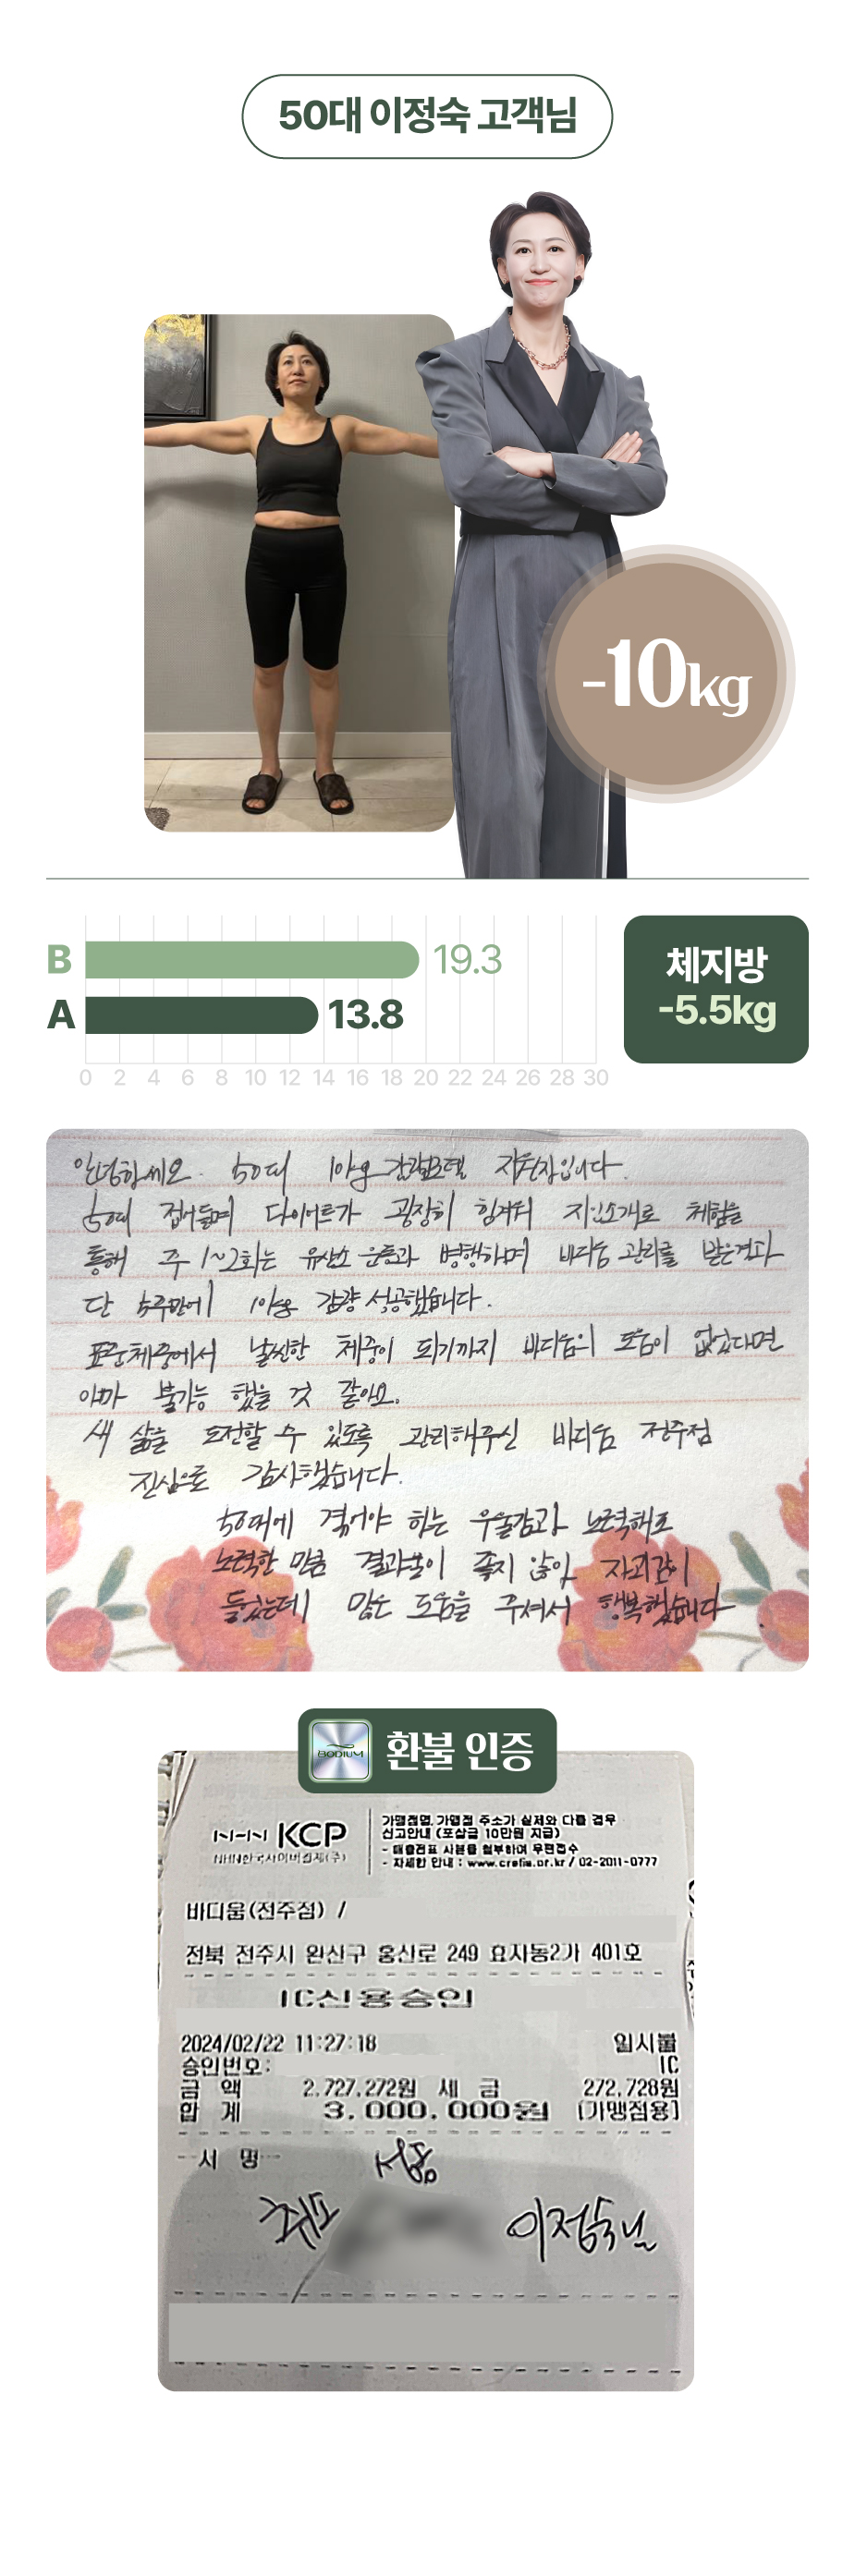 50대 이정숙 고객님
-10kg
B 19.3
A 13.8
0 2 4 6 8 10 12 14 16 18 20 22 24 26 28 30
체지방
-5.5kg
안녕하세요. 50대 10kg 감량모델 지원자입니다.
50대 접어들며 다이어트가 굉장히 힘겨워 지인소개로 체험을
통해 주 1~2회는 유산소 운동과 병행하며 바디움 관리를 받은결과
단 5주만에 10kg 감량 성공했습니다.
표준체중에서 날씬한 체중이 되기까지 바디움의 도움이 없었다면
아마 불가능 했을 것 같아요.
새 삶을 도전할 수 있도록 관리해주신 바디움 전주점
진심으로 감사했습니다.
50대에 겪어야 하는 우울감과 노력해도
노력한 만큼 결과물이 좋지 않아 자괴감이
들었는데 많은 도움을 주셔서 행복했습니다
BODIUM 환불 인증
NHN KCP
NHN한국사이버결제(주)
가맹점명, 가맹점 주소가 실제와 다를 경우
신고안내 (포상금 10만원 지급)
- 매출전표 사본을 첨부하여 우편접수
- 자세한 안내 : www.crefia.or.kr / 02-2011-0777
바디움(전주점) /
전북 전주시 완산구 홍산로 249 효자동2가 401호
IC신용승인
2024/02/22 11:27:18 일시불
승인번호: IC
금 액 2,727,272원 세 금 272,728원
합 계 3,000,000원 [가맹점용]
서 명
이정숙님